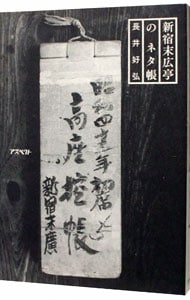 新宿末広亭
のネタ帳
長井好弘
アスペクト
昭和四十三年初席
高座控帳
新宿末廣